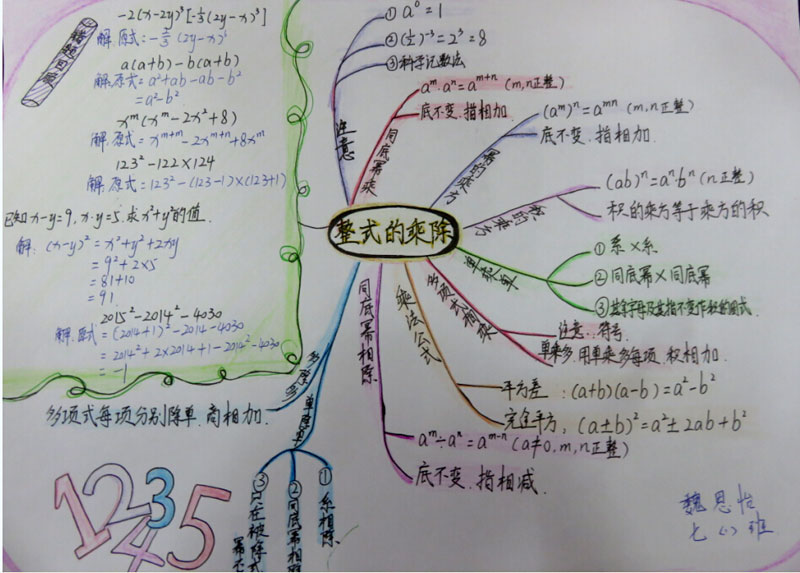 错题回顾
-2(x-2y)³[-⅓(2y-x)³]
a(a+b)-b(a+b)
解:原式=a²+ab-ab-b²
=a²-b²
xᵐ(xᵐ-2x²+8)
解:原式=xᵐ⁺ᵐ-2xᵐ⁺ⁿ+8xᵐ
123²-122×124
解:原式=123²-(123-1)×(123+1)
已知x-y=9, x·y=5,求x²+y²的值.
解:(x-y)²=x²+y²+2xy
=9²+2×5
=81+10
=91
2015²-2014²-4030
解:原式=(2014+1)²-2014-4030
=2014²+2×2014+1-2014²-4030
=-1
整式的乘除
注意
①a⁰=1
②(½)⁻³=2³=8
③科学记数法
同底幂乘
aᵐ·aⁿ=aᵐ⁺ⁿ (m,n正整)
底不变.指相加.
幂的乘方
(aᵐ)ⁿ=aᵐⁿ (m,n正整)
底不变.指相加.
积的乘方
(ab)ⁿ=aⁿ·bⁿ (n正整)
积的乘方等于乘方的积
单乘单
①系×系
②同底幂×同底幂
多项式相乘
注意:符号.
单乘多.用单乘多每项.积相加.
乘法公式
平方差:(a+b)(a-b)=a²-b²
完全平方,(a±b)²=a²±2ab+b²
同底幂相除
aᵐ÷aⁿ=aᵐ⁻ⁿ (a≠0,m,n正整)
底不变.指相减.
多除单
多项式每项分别除单.商相加.
单除单
①系相除
②同底幂相除
③只在被除式
12345
魏思怡
七(1)班